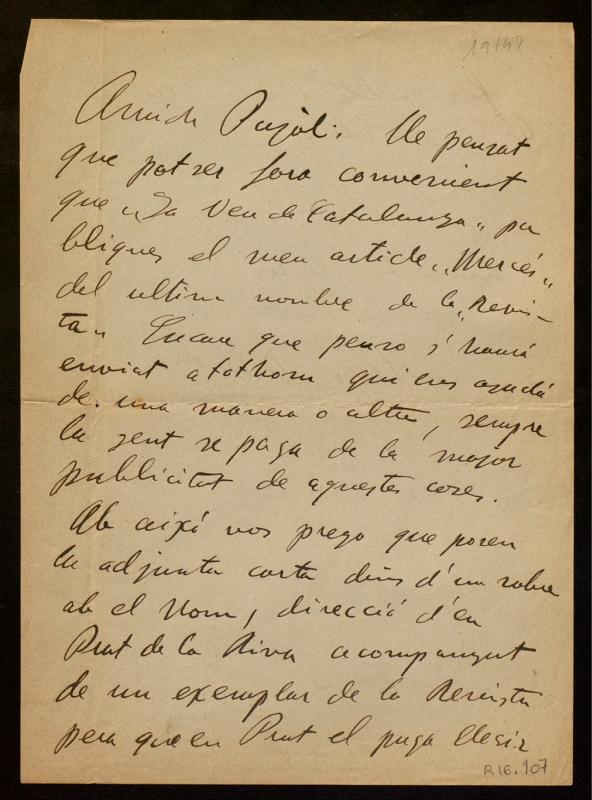 19/47
Amich Pujol: He pensat
que potser fora convenient
que „La Veu de Catalunya„ pu
bliques el meu article „Mercés„
del ultim nombre de la „Revis-
ta„ Encare que penso s'haurá
enviat a tothom qui ens ajudá
de una manera o altre, sempre
la gent se paga de la major
publicitat de aquestes coses.
Ab aixó vos prego que poseu
la adjunta carta dins d'un sobre
ab el nom, direcció d'en
Prat de la Riva acompanyat
de un exemplar de la Revista
pera que en Prat el puga llegir
R16.107